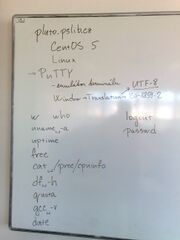 pluto.pslib.cz
CentOS 5
Linux
→ PuTTY
- emulátor terminálu
UTF-8
Window → Translation
ISO-8859-2
w who
uname -a
uptime
free
cat /proc/cpuinfo
df -h
quota
gcc -v
date
logout
passwd